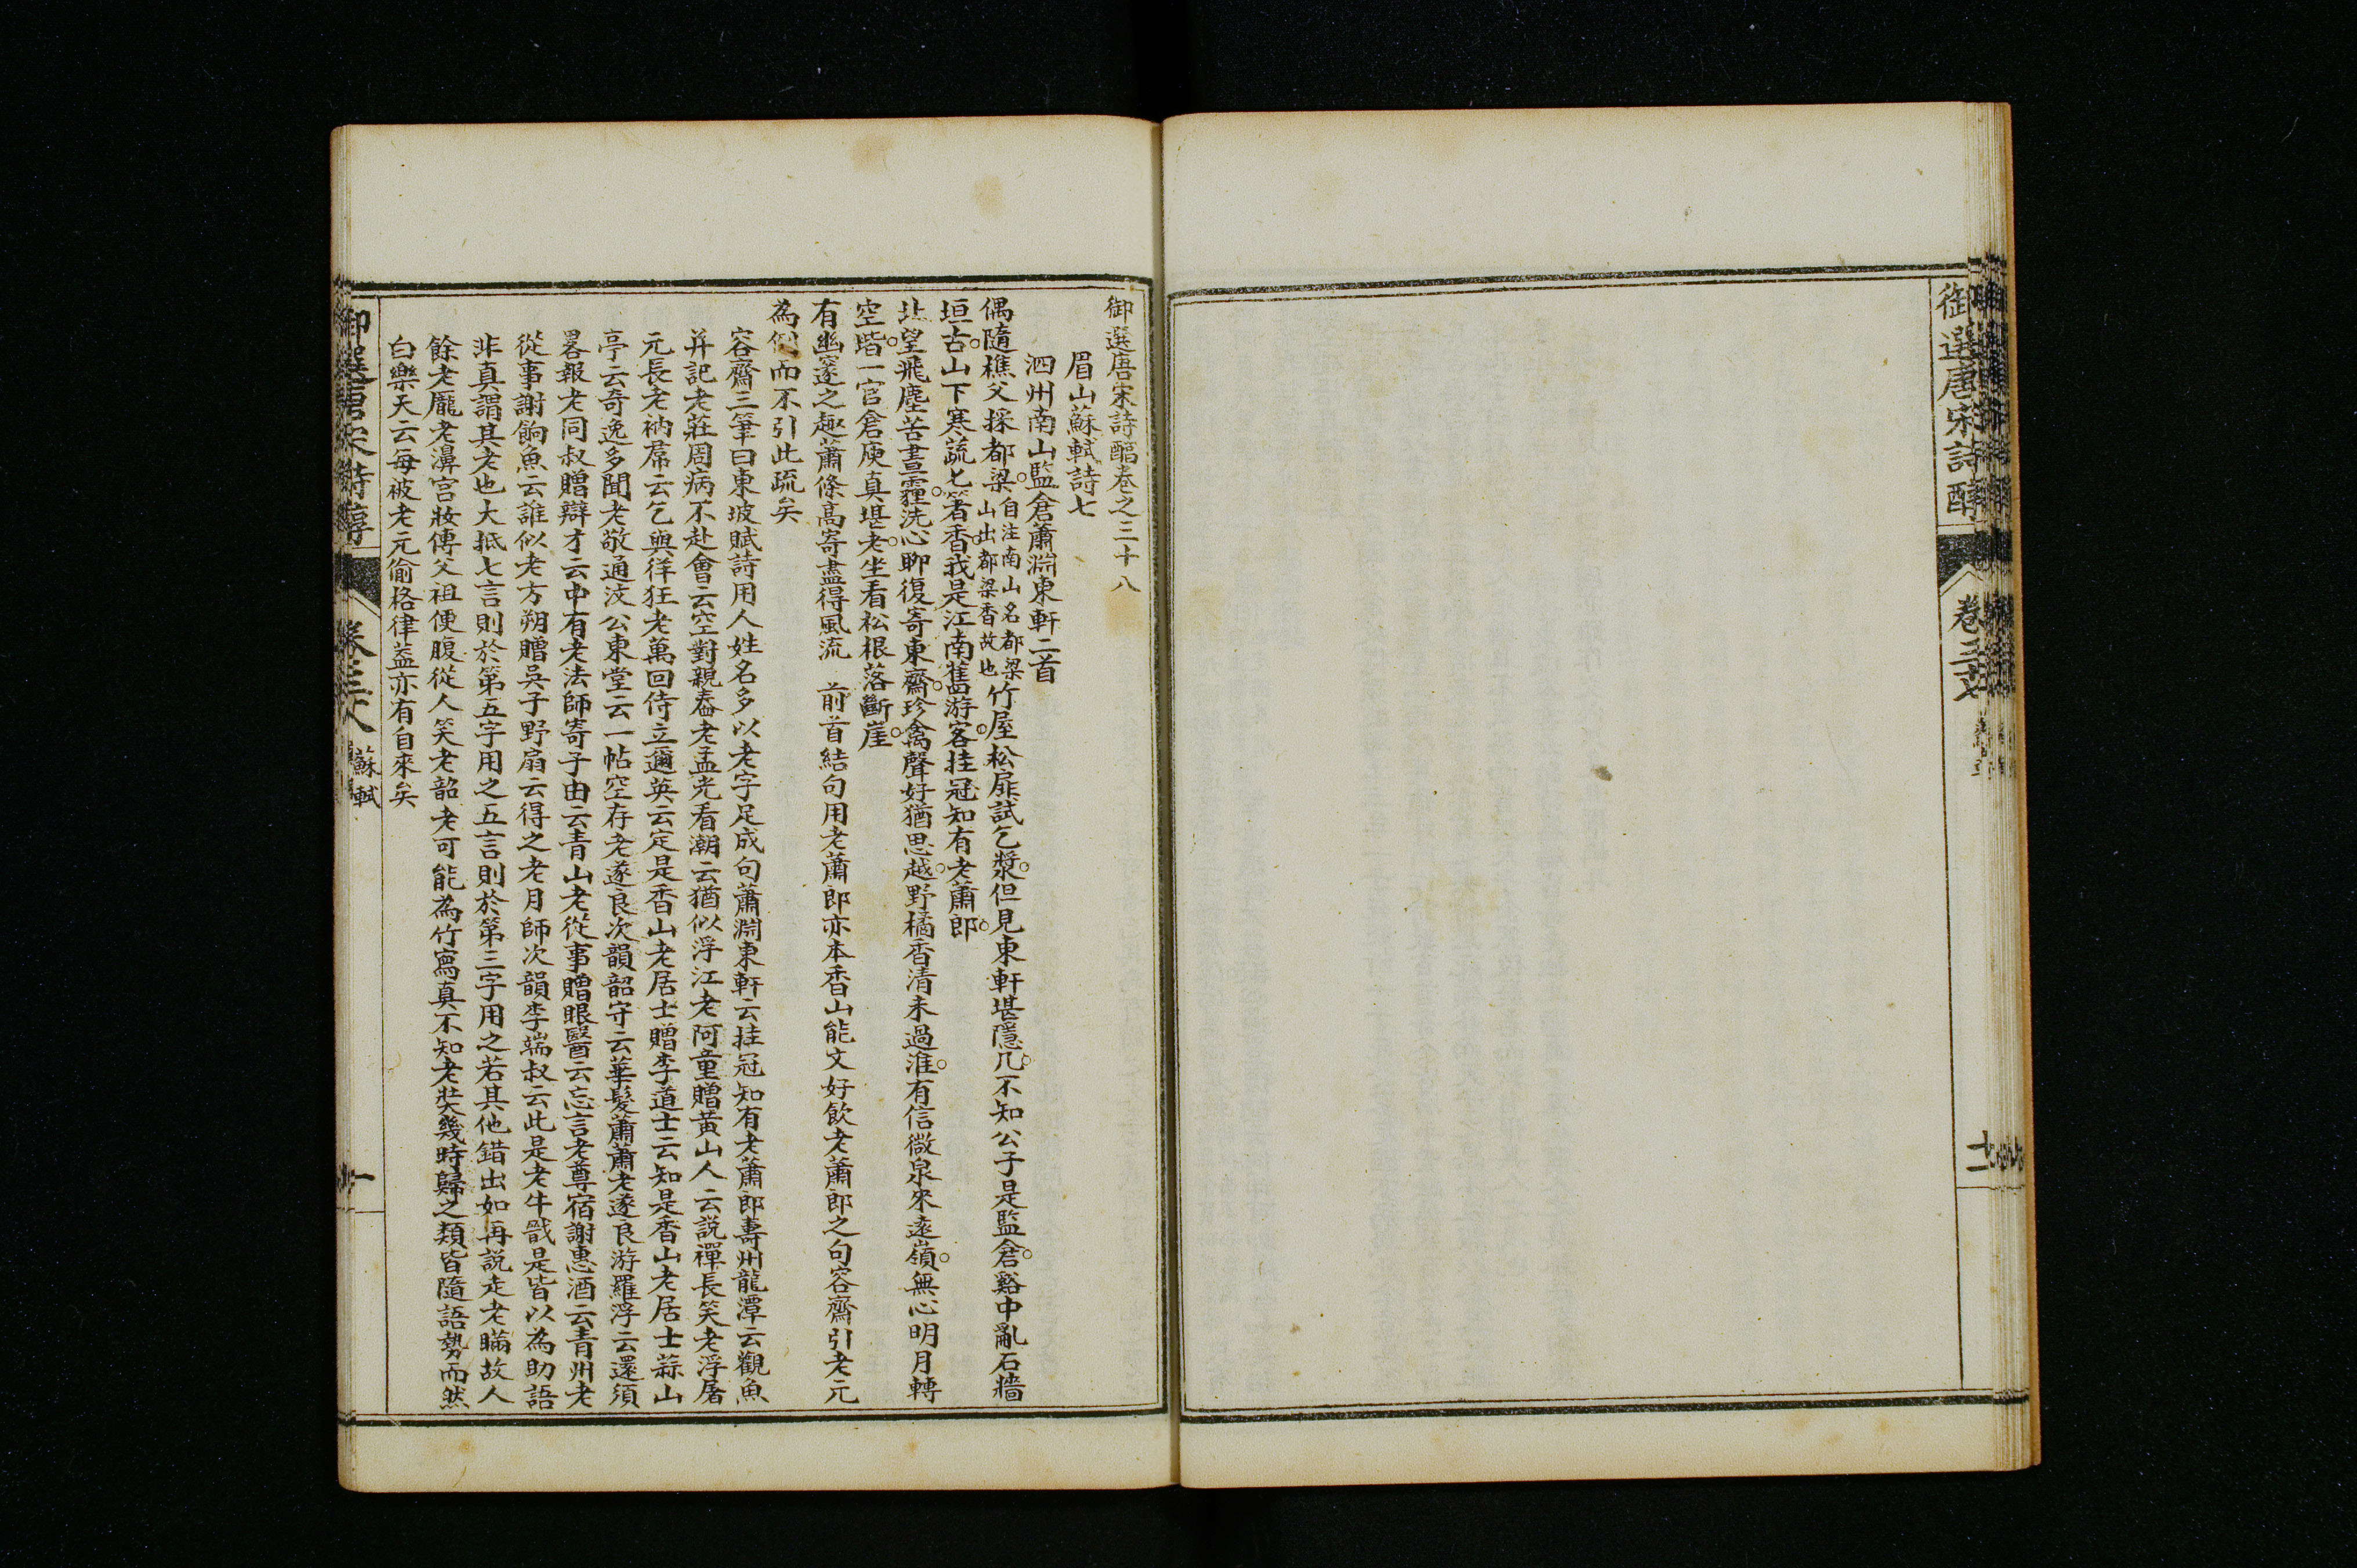 御選唐宋詩醇
卷三十七
十一
御選唐宋詩醇卷之三十八
眉山蘇軾詩七
泗州南山監倉蕭淵東軒二首
偶隨樵父採都梁自注南山名都梁山出都梁香故也竹屋松扉試乞漿但見東軒堪隱几不知公子是監倉谿中亂石牆
垣古山下寒蔬匕箸香我是江南舊游客挂冠知有老蕭郎
北望飛塵苦晝霾洗心聊復寄東齋珍禽聲好猶思越野橘香清未過淮有信微泉來遠嶺無心明月轉
空堦一官倉庾真堪老坐看松根落斷崖
有幽邃之趣蕭條高寄盡得風流 前首結句用老蕭郎亦本香山能文好飲老蕭郎之句容齋引老元
為例而不引此疏矣
容齋三筆曰東坡賦詩用人姓名多以老字足成句蕭淵東軒云挂冠知有老蕭郎壽州龍潭云觀魚
并記老莊周病不赴會云空對親舂老孟光看潮云猶似浮江老阿童贈黃山人云說禪長笑老浮屠
元長老衲帬云乞與徉狂老萬回侍立邇英云定是香山老居士贈李道士云知是香山老居士蒜山
亭云奇逸多聞老敬通汶公東堂云一帖空存老遂良次韻韶守云華髮蕭蕭老遂良游羅浮云還須
畧報老同叔贈辯才云中有老法師寄子由云青山老從事贈眼醫云忘言老尊宿謝惠酒云青州老
從事謝餉魚云誰似老方朔贈吳子野扇云得之老月師次韻李端叔云此是老牛戩是皆以為助語
非真謂其老也大抵七言則於第五字用之五言則於第三字用之若其他錯出如再說走老瞞故人
餘老龐老濞宮妝傳父祖便腹從人笑老韶老可能為竹寫真不知老奘幾時歸之類皆隨語勢而然
白樂天云每被老元偷格律蓋亦有自來矣
御選唐宋詩醇
卷三十八
蘇軾
一